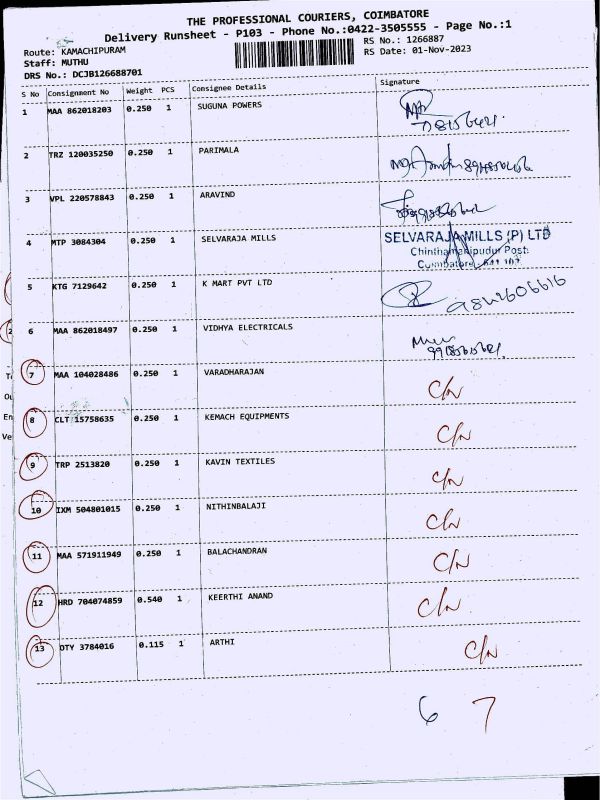 THE PROFESSIONAL COURIERS, COIMBATORE
Delivery Runsheet - P103 - Phone No.:0422-3505555 - Page No.:1
Route: KAMACHIPURAM
RS No.: 1266887
Staff: MUTHU
RS Date: 01-Nov-2023
DRS No.: DCJB126688701
S No Consignment No Weight PCS Consignee Details Signature
1 MAA 862018203 0.250 1 SUGUNA POWERS
2 TRZ 120035250 0.250 1 PARIMALA
3 VPL 220578843 0.250 1 ARAVIND
4 MTP 3084304 0.250 1 SELVARAJA MILLS SELVARAJA MILLS (P) LTD
Post.
5 KTG 7129642 0.250 1 K MART PVT LTD 9842606616
6 MAA 862018497 0.250 1 VIDHYA ELECTRICALS
7 MAA 104028486 0.250 1 VARADHARAJAN C/N
8 CLT 15758635 0.250 1 KEMACH EQUIPMENTS C/N
9 TRP 2513820 0.250 1 KAVIN TEXTILES C/N
10 IXM 504801015 0.250 1 NITHINBALAJI C/N
11 MAA 571911949 0.250 1 BALACHANDRAN C/N
12 HRD 704074859 0.540 1 KEERTHI ANAND C/N
13 OTY 3784016 0.115 1 ARTHI C/N
6 7